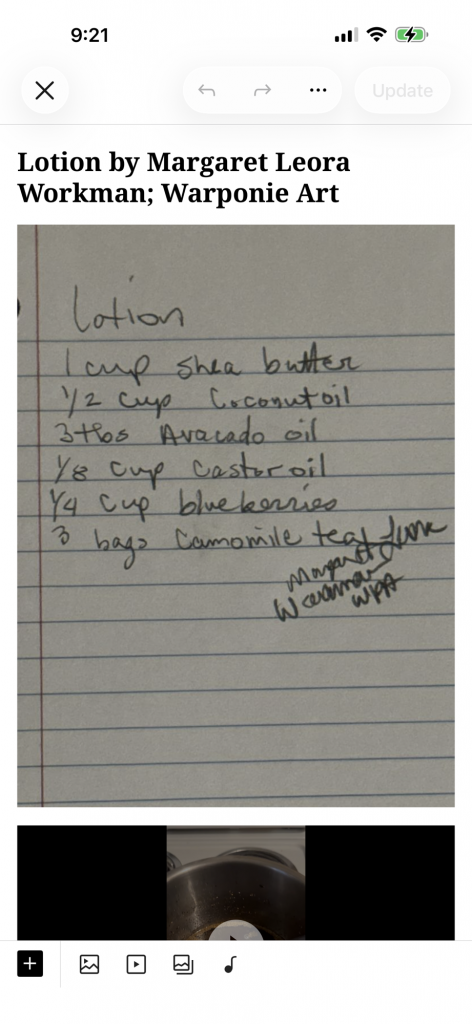 9:21
Update
Lotion by Margaret Leora
Workman; Warponie Art
Lotion
1 cup shea butter
1/2 cup Coconut oil
3 tbs Avacado oil
1/8 cup castor oil
1/4 cup blueberries
3 bags Camomile tea
Margaret
Workman
WPA